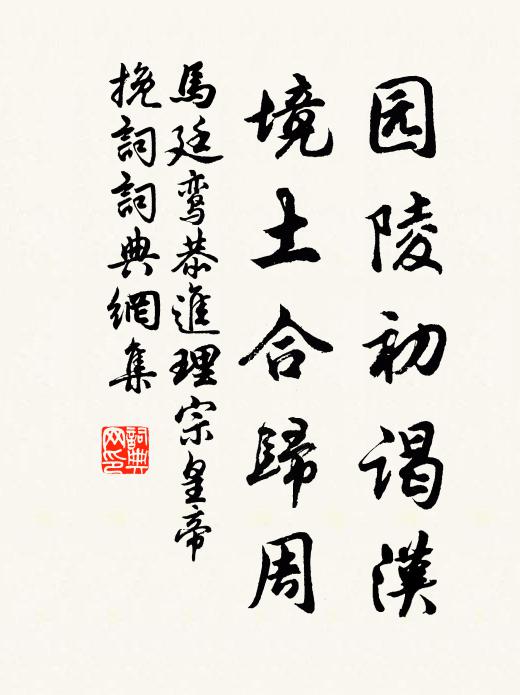 园陵初谒漢
境土合歸周
馬廷鸾恭進理宗皇帝
挽詞詞典網集
詞典
网印